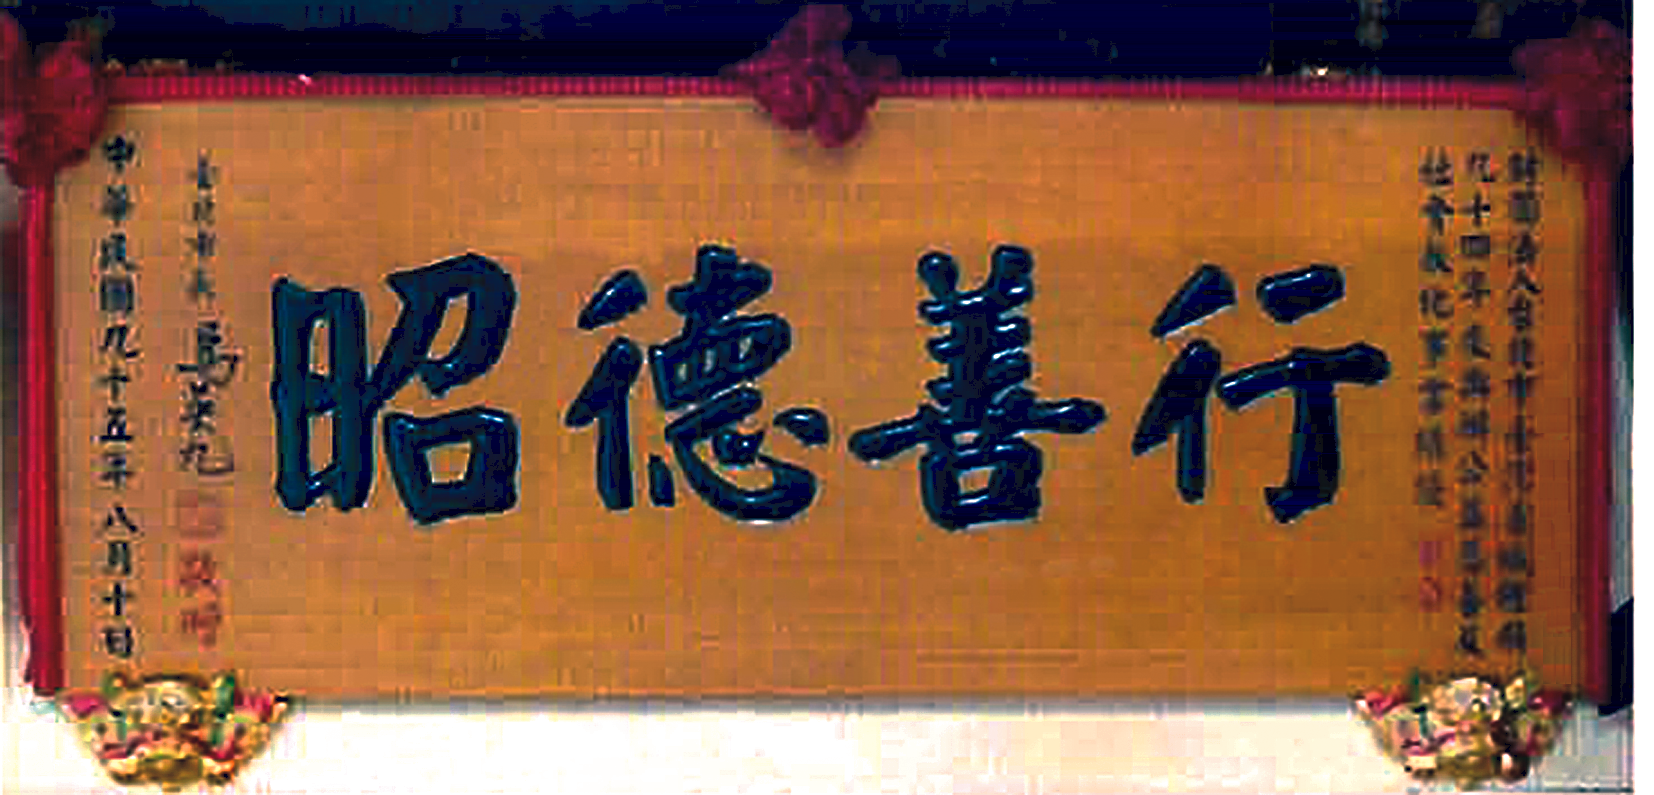 財團法人台北市
九十四年度興辦公益慈善及
社會教化事業績優
行善德昭
臺北市長 馬英九
中華民國九十五年八月十日